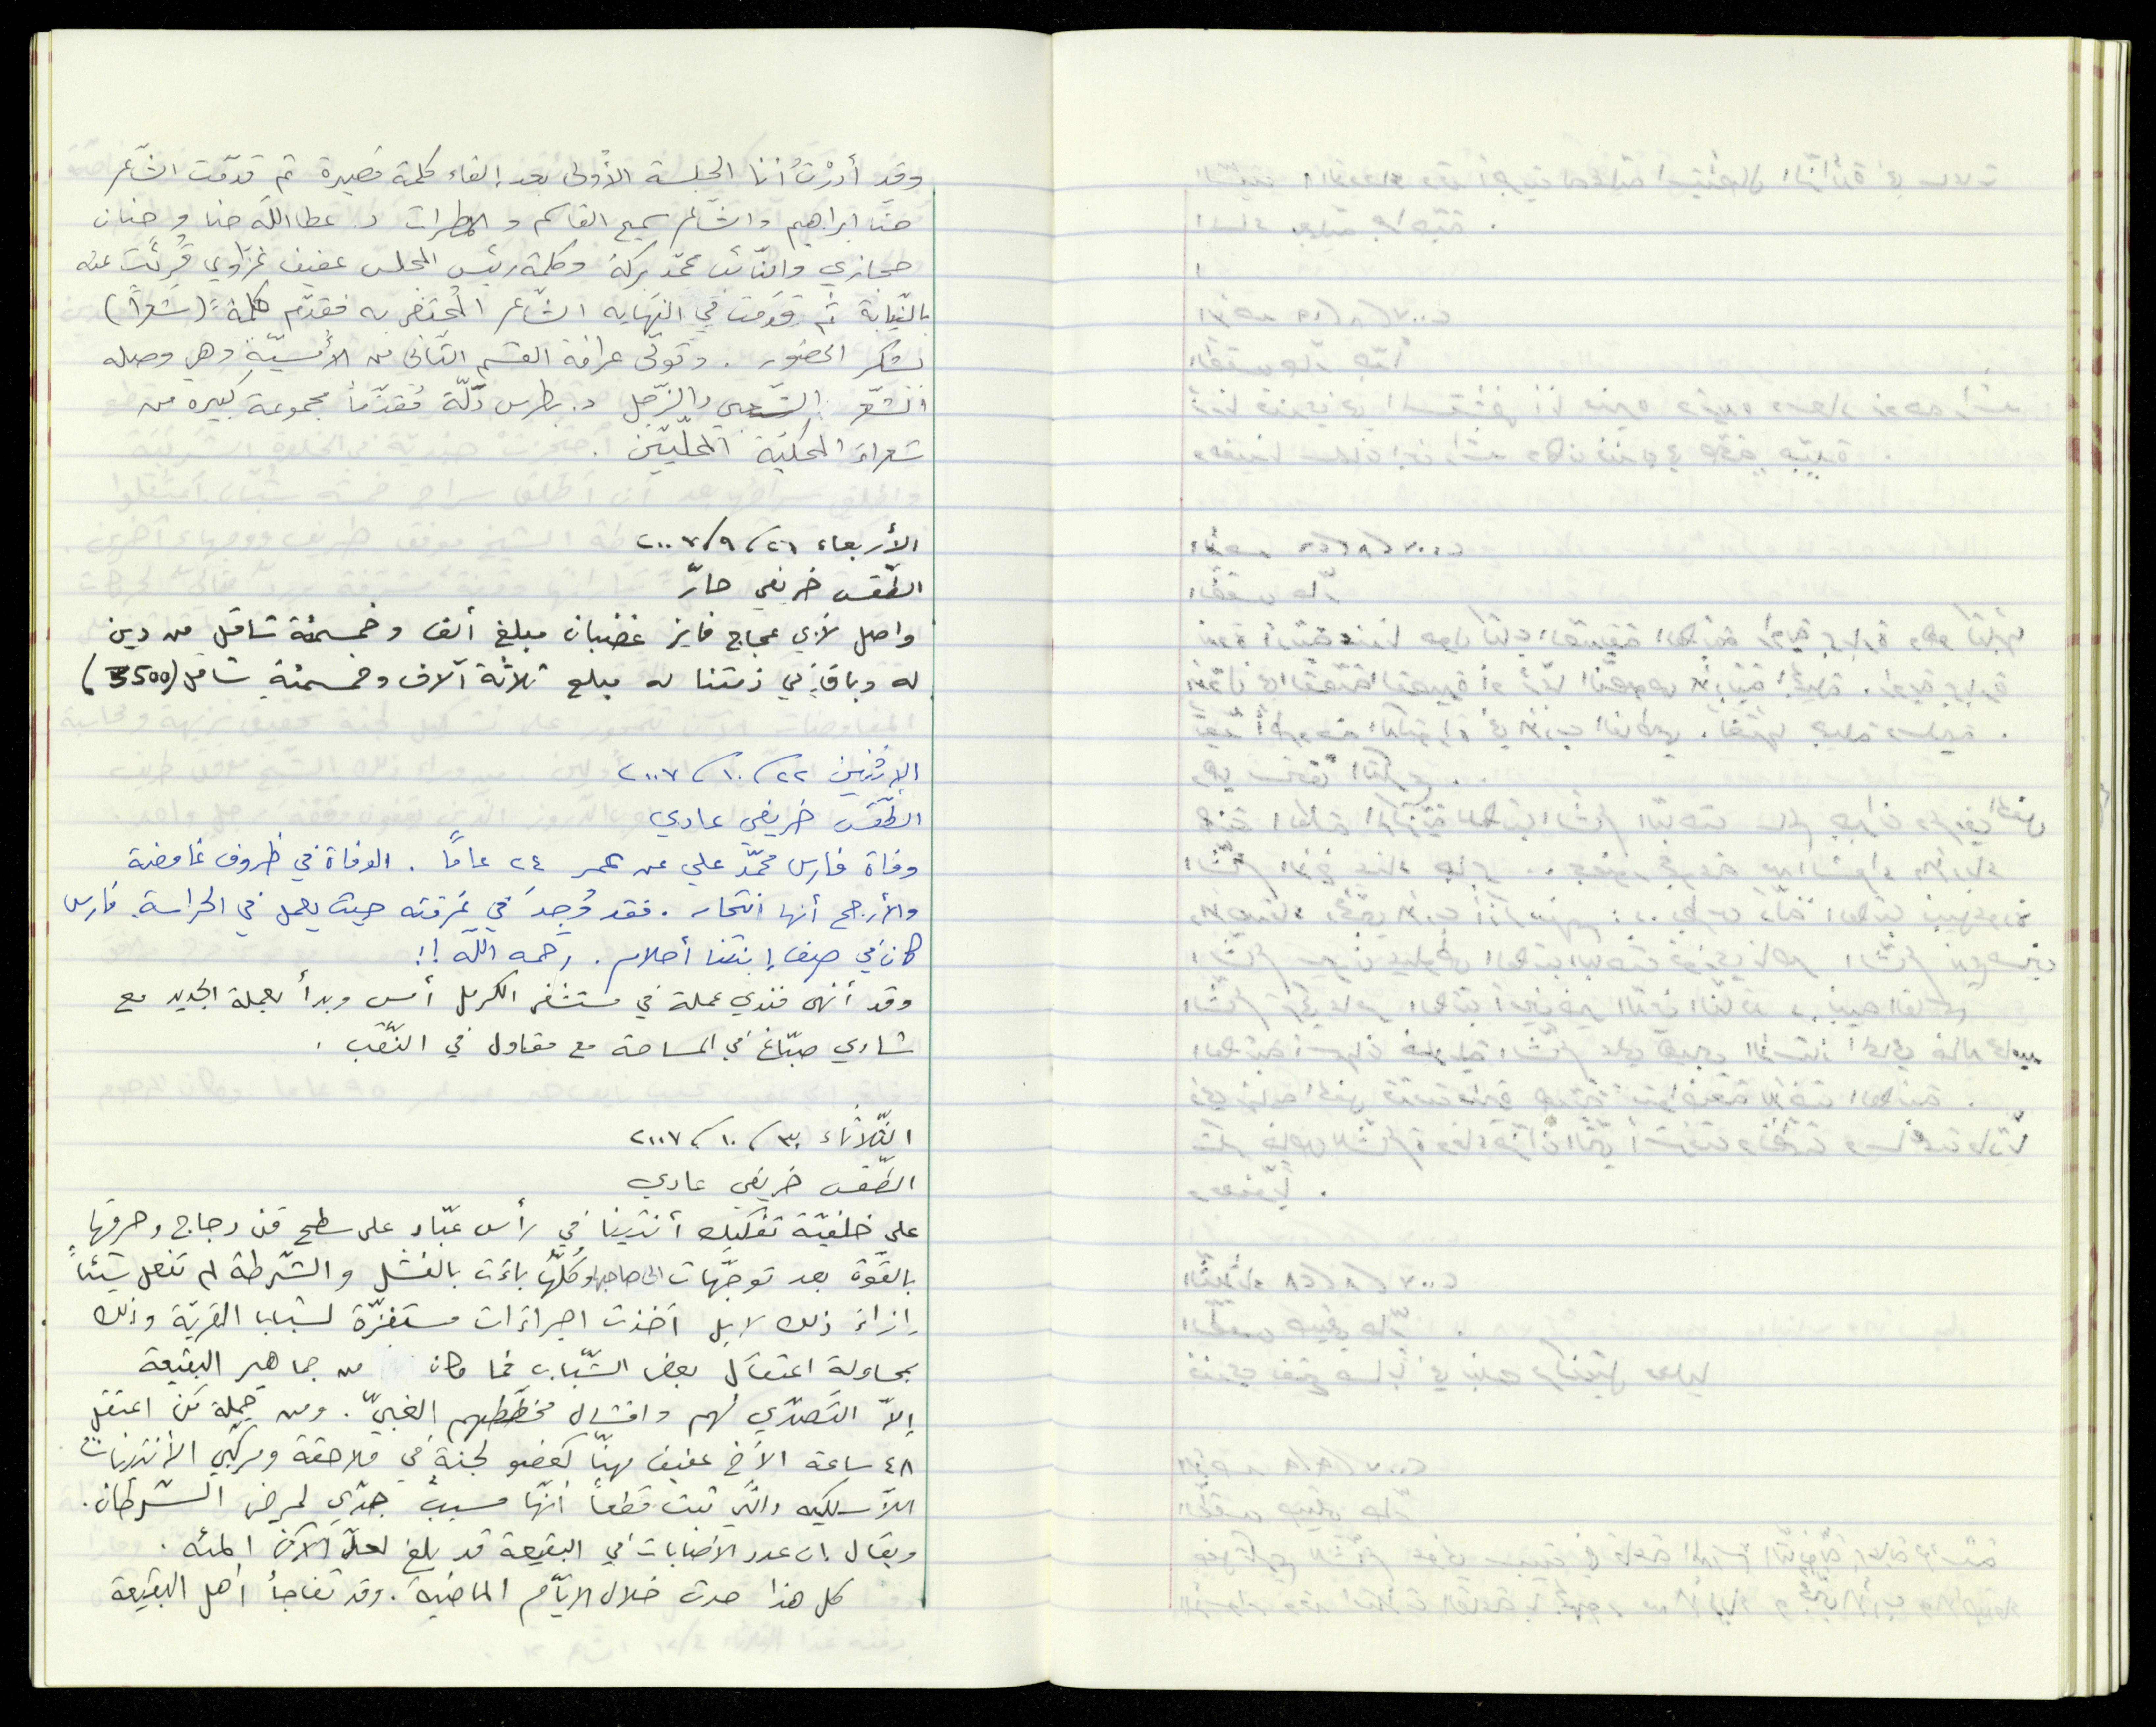 وقد أدرْتُ أنا الجلسة الأولى بعد إلقاء كلمة قصيرة ثم قدّمت الشّاعر
حنّا ابراهيم والشّاعر سميح القاسم و المطران د. عطا اللّه حنا و حنان
حجازي والنّائب محمّد بركة وكلمة رئيس المجلس عفيف غزّاوي قُرئت عنه
بالنّيابة ثمّ قدّمت في النّهاية الشّاعر المُحتفى به فقدّم كلمةً (شعراً)
بشكر الحضور. وتولّى عرافة القسم الثّاني من الأمسيّة وهي وصله
الشّعر الشّعبي والزّجل د. بطرس دلّة مُقدّماً مجموعة كبيره من
شعراء المحكيّة المحلّيّين.
الأربعاء ٢٦/٩/٢٠٠٧
الطّقس خريفي حارّ
واصل لأبي عجاج فايز غضبان مبلغ ألف وخمسمئة شاقل من دين
له وباقٍ في ذمّتنا له مبلغ ثلاثة آلاف وخمسمئةِ شاقل (3500)
الإثنين ٢٢/١٠/٢٠٠٧
الطّقس خريفي عادي
وفاة فارس محمّد علي عن عمر ٢٤ عامًا. الوفاة في ظروف غامضة
والأرجح أنها انتحار. فقد وُجدَ في غرفته حيث يعمل في الحراسة. فارس
كان في صف إبنتنا أحلام. رحمه اللّه !!
وقد أنهى فندي عملة في مستشفى الكرمل أمس وبدأ بعملة الجديد مع
شادي صبّاغ في المساحة مع مقاول في النّقب.
الثّلاثاء ٣٠/١٠/٢٠٠٧
الطّقس خريفي عادي
على خلفيّة تفكيك أنتينا في رأس عبّاد على سطح قن دجاج وحرقها
بالقوّة بعد توجّهات الى صاحبها وكُلّها باءَت بالفشل والشّرطة لم تفعل شيئاً
إزاءَ ذلك لا بل اتخذت اجراءَات مستفزّة لشباب القرية وذلك
بمحاولة اعتقال بعض الشّباب فما كان من جماهير البقيعة
إلاّ التّصدّي لهم وافشال مخطّطهم الغبيّ. ومن جملة مَن اعتقل
٤٨ ساعة الأخ عفيف مهنّا كعضو لجنةٍ في ملاحقة ومركّبي الأنتينات
اللاّسلكيه والّتي ثبت قطعاً أنّها مسبب جدّي لمرض السّرطان.
ويقال إن عدد الأصابات في البقيعة قد بلغ لحدّ الآن المئه.
كل هذا حدث خلال الأيّام الماضية. وقد تفاجأ أهل البقيعة